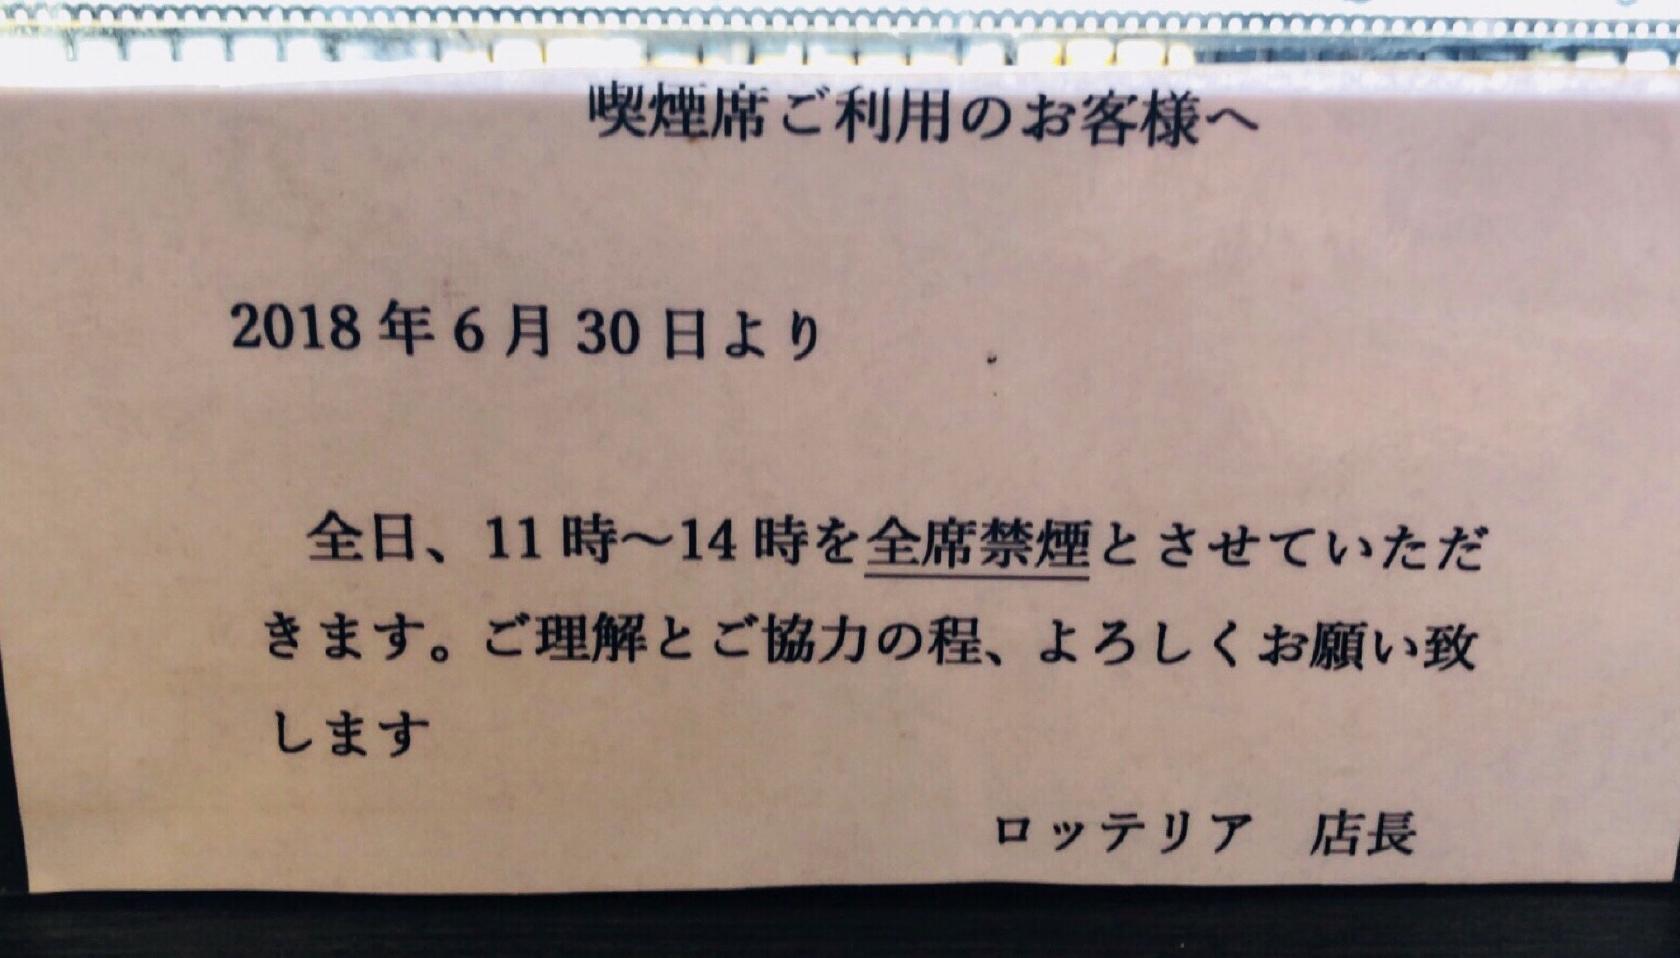 喫煙席ご利用のお客様へ
2018年6月30日より
全日、11時～14時を全席禁煙とさせていただ
きます。ご理解とご協力の程、よろしくお願い致
します
ロッテリア　店長